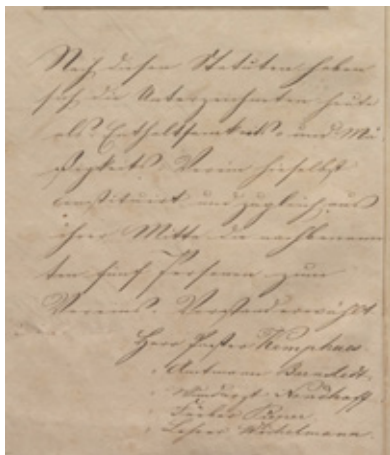 Nach diesen Statuten haben
sich die Unterzeichneten heute
als Enthaltsamkeits- und Mä-
ßigkeits Verein hieselbst
constituirt und zugleich aus
ihrer Mitte die nachbenann-
ten fünf Personen zum
Vereins-Vorstand erwählt.
Herr Pastor
" Amtmann
" Wundarzt Neuhoff
" Färber
" Lehrer Winkelmann.